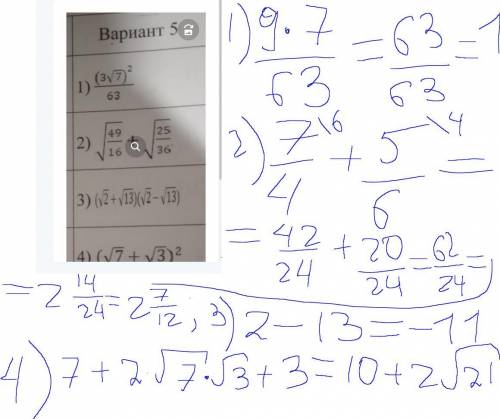 Вариант 5
1) (3√7)² / 63
2) √(49/16) + √(25/36)
3) (√2+√13)(√2−√13)
4) (√7 + √3)²
1) 9·7/63 = 63/63 = 1
2) 7/4 \6 + 5/6 \4 =
= 42/24 + 20/24 = 62/24 =
= 2 14/24 = 2 7/12 ; 3) 2 − 13 = −11
4) 7 + 2·√7·√3 + 3 = 10 + 2√21